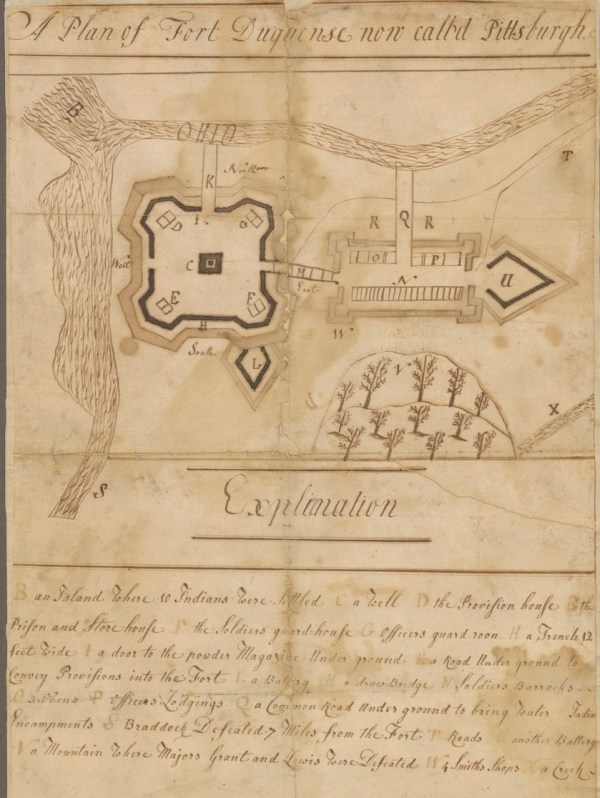 A Plan of Fort Duquense now calld Pittsburgh
B
OHIO
T
K
North
R Q R
D I G
West
C
O P
M
East
N
U
E F
H
W
South
L
V
X
S
Explination
B an Island Where 10 Indians Were Settled C a Well D the Provision house E the
Prison and Store house F the Soldiers guard house G Officers guard room H a French 12
feet Wide I a door to the powder Magazine Under ground K a Road Under ground to
Convey Provisions into the Fort L a Battery M a draw Bridge N Soldiers Barracks
O Ovens P Officers Lodgings Q a Common Road Under ground to bring Water Indian
Encampments S Braddock Defeated 7 Miles from the Fort T Roads U another Battery
V a Mountain Where Majors Grant and Lewis Were Defeated W 4 Smiths Shops X a Creek